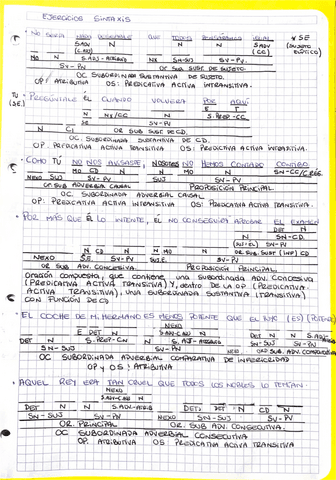 EJERCICIOS SINTAXIS
NO SERÍA MUY AGRADABLE QUE TODOS IGUAL Y SE
SADV N N SADV (SUJETO
(CAN) (CC)
MO N S.ADJ-ATRIBUTO NX SN-SUJ SV-PV.
SV-PN OR. SUB SUST. DE SUJETO.
OC SUBORDINADA SUSTANTIVA DE SUJETO.
OP: ATRIBUTIVA OS: PREDICATIVA ACTIVA INTRANSITIVA.
TÚ
(S.E.) PREGÚNTALE ÉL CUANDO VOLVERÁ POR AQUÍ
E T
N NX/CC N S.PREP-CC
SV-PV
N OR SUB SUST DE CD.
OC. SUBORDINADA SUSTANTIVA DE CD.
OP. PREDICATIVA ACTIVA TRANSITIVA OS: PREDICATIVA ACTIVA INTRANSITIVA.
COMO TÚ NO NOS AVISASTE, NOSOTROS NO HEMOS CONTADO CONTIGO
N MO CD N N MO N SN-CC/C.RÉG.
NEXO SUJ SV-PV SUJ SV-PV
OR SUB ADVERBIAL CAUSAL PROPOSICIÓN PRINCIPAL.
OC SUBORDINADA ADVERBIAL CAUSAL
OP: PREDICATIVA ACTIVA INTRANSITIVA OS: PREDICATIVA ACTIVA TRANSITIVA.
POR MÁS QUE ÉL LO INTENTE, ÉL NO CONSEGUIRÁ APROBAR EL EXAMEN
DET N
N SN-CD.
(SUJ-ÉL) SV-PV
N CD N N MO N OR. SUB. SUST (INF) CD
NEXO S.E. SV-PV SUJ.E SV-PV
OR SUB ADV. CONCESIVA. PROPOSICIÓN PRINCIPAL
Oración compuesta, que contiene, una SUBORDINADA ADV. CONCESIVA
(PREDICATIVA ACTIVA TRANSITIVA) Y, dentro de la OP (PREDICATIVA
ACTIVA TRANSITIVA), UNA SUBORDINADA SUSTANTIVA (TRANSITIVA)
CON FUNCIÓN DE CD
EL COCHE DE M. HERNANO ES MENOS POTENTE QUE EL MÍO (ES) (POTENTE)
NEXO
E DET N S.ADV-CAN N DET N N S.ADJ-
DET N S.PREP-CN N S.ADJ-ATRIBUTO
SN-SUJ SV-PN NEXO SN-SUJ SV-PN
OR SUB ADV. COMPARATIVA
OC SUBORDINADA ADVERBIAL COMPARATIVA DE INFERIORIDAD
OP y OS: ATRIBUTIVA
AQUEL REY ERA TAN CRUEL QUE TODOS LOS NOBLES LO TEMÍAN.
NEXO
S.ADV-CAN N
DET N N S.ADJ-ATRIB DET2 DET N CD N
SN-SUJ SV-PN NEXO SN-SUJ SV-PV
OR. PRINCIPAL OR. SUB ADV. CONSECUTIVA.
OC SUBORDINADA ADVERBIAL CONSECUTIVA
OP. ATRIBUTIVA OS PREDICATIVA ACTIVA TRANSITIVA